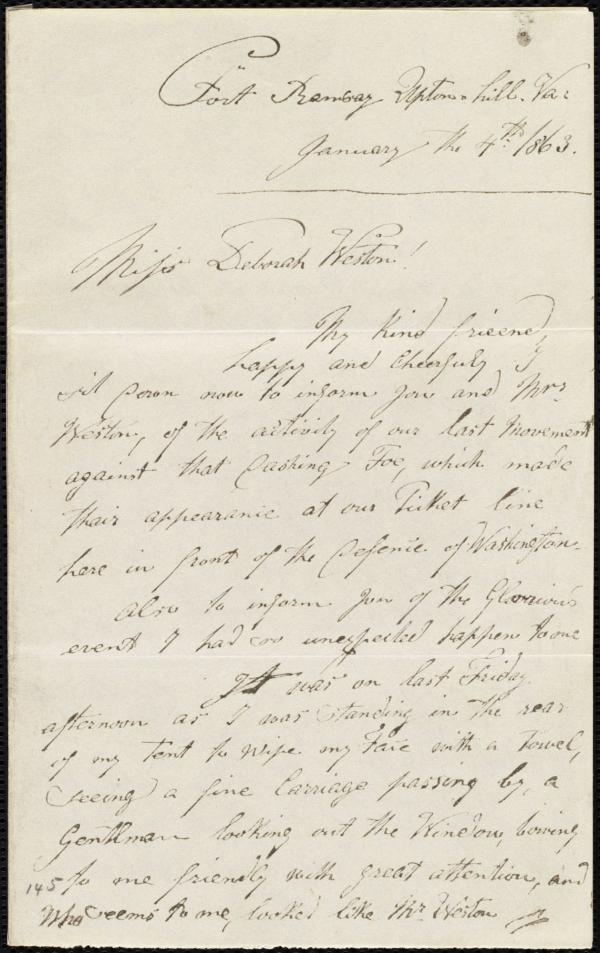 Fort Ramsay Upton-hill. Va:
January the 4th. 1863.
Miss Deborah Weston!
My Kind frieend,
happy and cheerfuly I
sit down now to inform you and Mrs.
Weston, of the activity of our last movement
against that Dashing Foe, which made
thair appearanie at our Picket line
here in front of the Defenie of Washington.
also to inform you of the Glorrious
event I had so unexpected happen to me
It was on last Friday
afternoon as I was standing in the rear
of my tent to wipe my Face with a Towel,
seeing a fine Carriage passing by, a
Gentlman looking out the Window, bowing
145 to me friendly with great attention, and
Who seems to me, looked like Mr. Weston